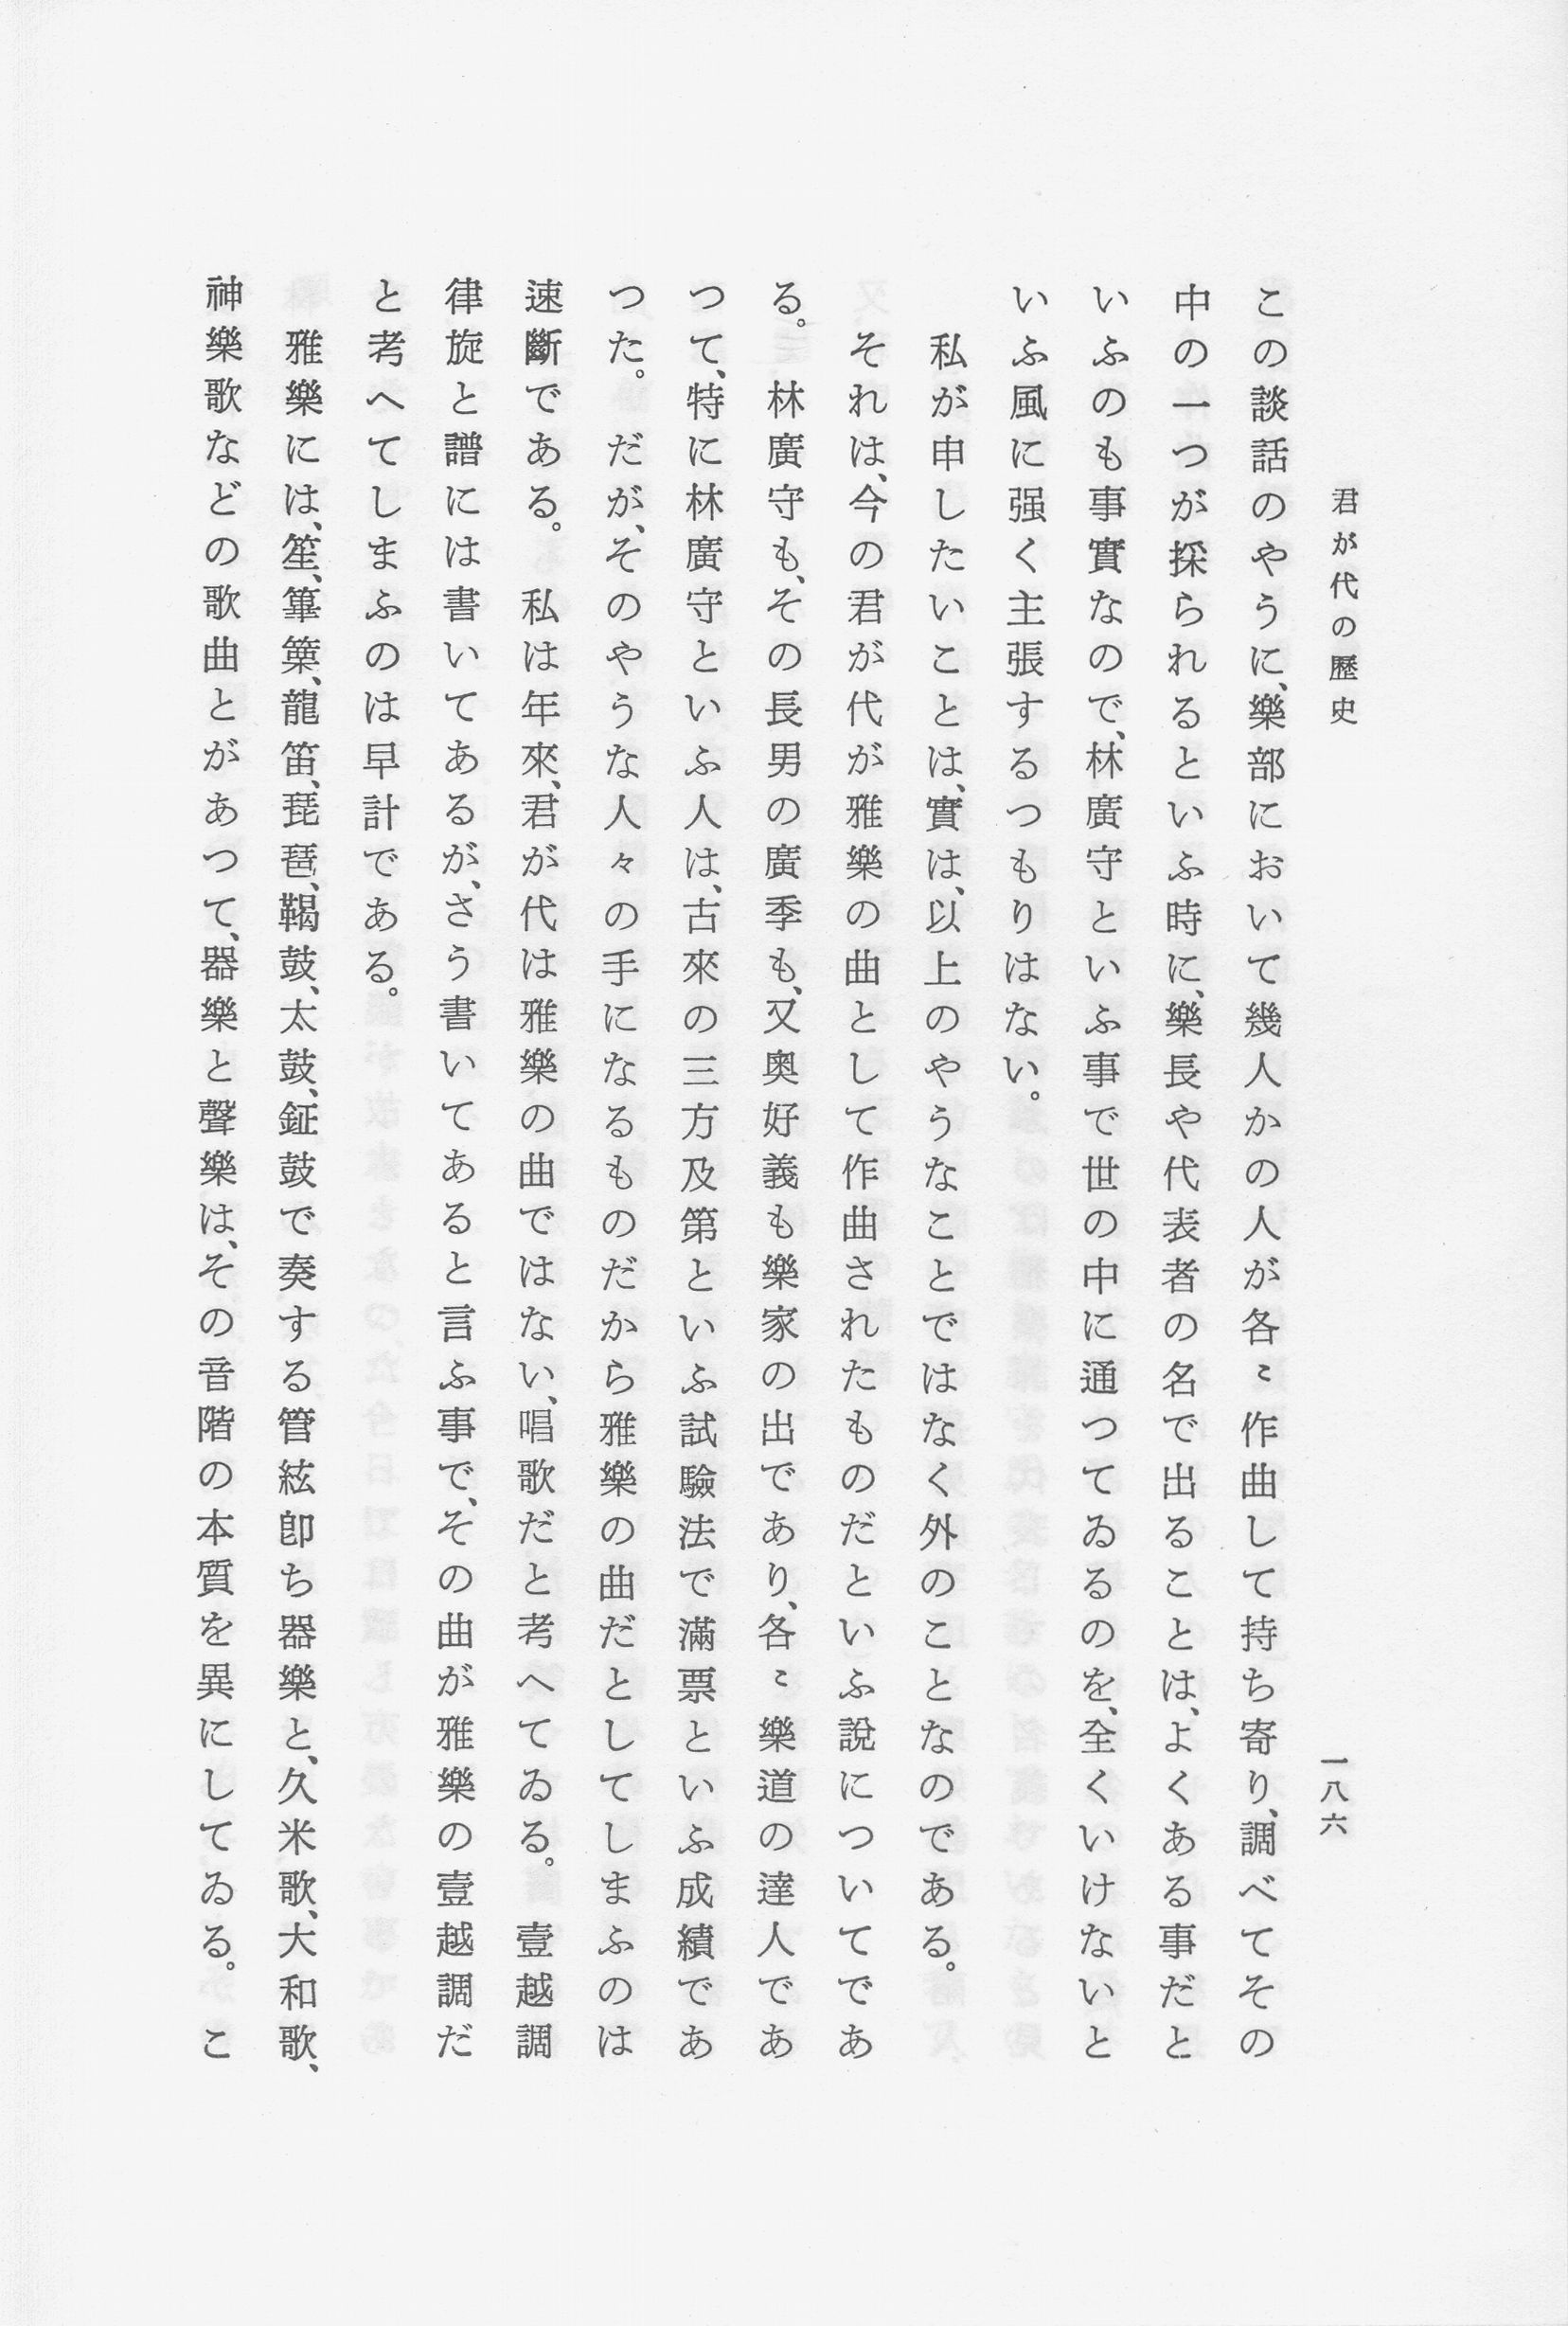 君が代の歷史
一八六
この談話のやうに、樂部において幾人かの人が各〻作曲して持ち寄り、調べてその
中の一つが採られるといふ時に、樂長や代表者の名で出ることは、よくある事だと
いふのも事實なので、林廣守といふ事で世の中に通つてゐるのを、全くいけないと
いふ風に强く主張するつもりはない。
私が申したいことは、實は、以上のやうなことではなく外のことなのである。
それは、今の君が代が雅樂の曲として作曲されたものだといふ說についてであ
る。林廣守も、その長男の廣季も、又奧好義も樂家の出であり、各〻樂道の達人であ
つて、特に林廣守といふ人は、古來の三方及第といふ試驗法で滿票といふ成績であ
つた。だが、そのやうな人々の手になるものだから雅樂の曲だとしてしまふのは
速斷である。私は年來、君が代は雅樂の曲ではない、唱歌だと考へてゐる。壹越調
律旋と譜には書いてあるが、さう書いてあると言ふ事で、その曲が雅樂の壹越調だ
と考へてしまふのは早計である。
雅樂には、笙、篳篥、龍笛、琵琶、鞨鼓、太鼓、鉦鼓で奏する管絃卽ち器樂と、久米歌、大和歌、
神樂歌などの歌曲とがあつて、器樂と聲樂は、その音階の本質を異にしてゐる。こ